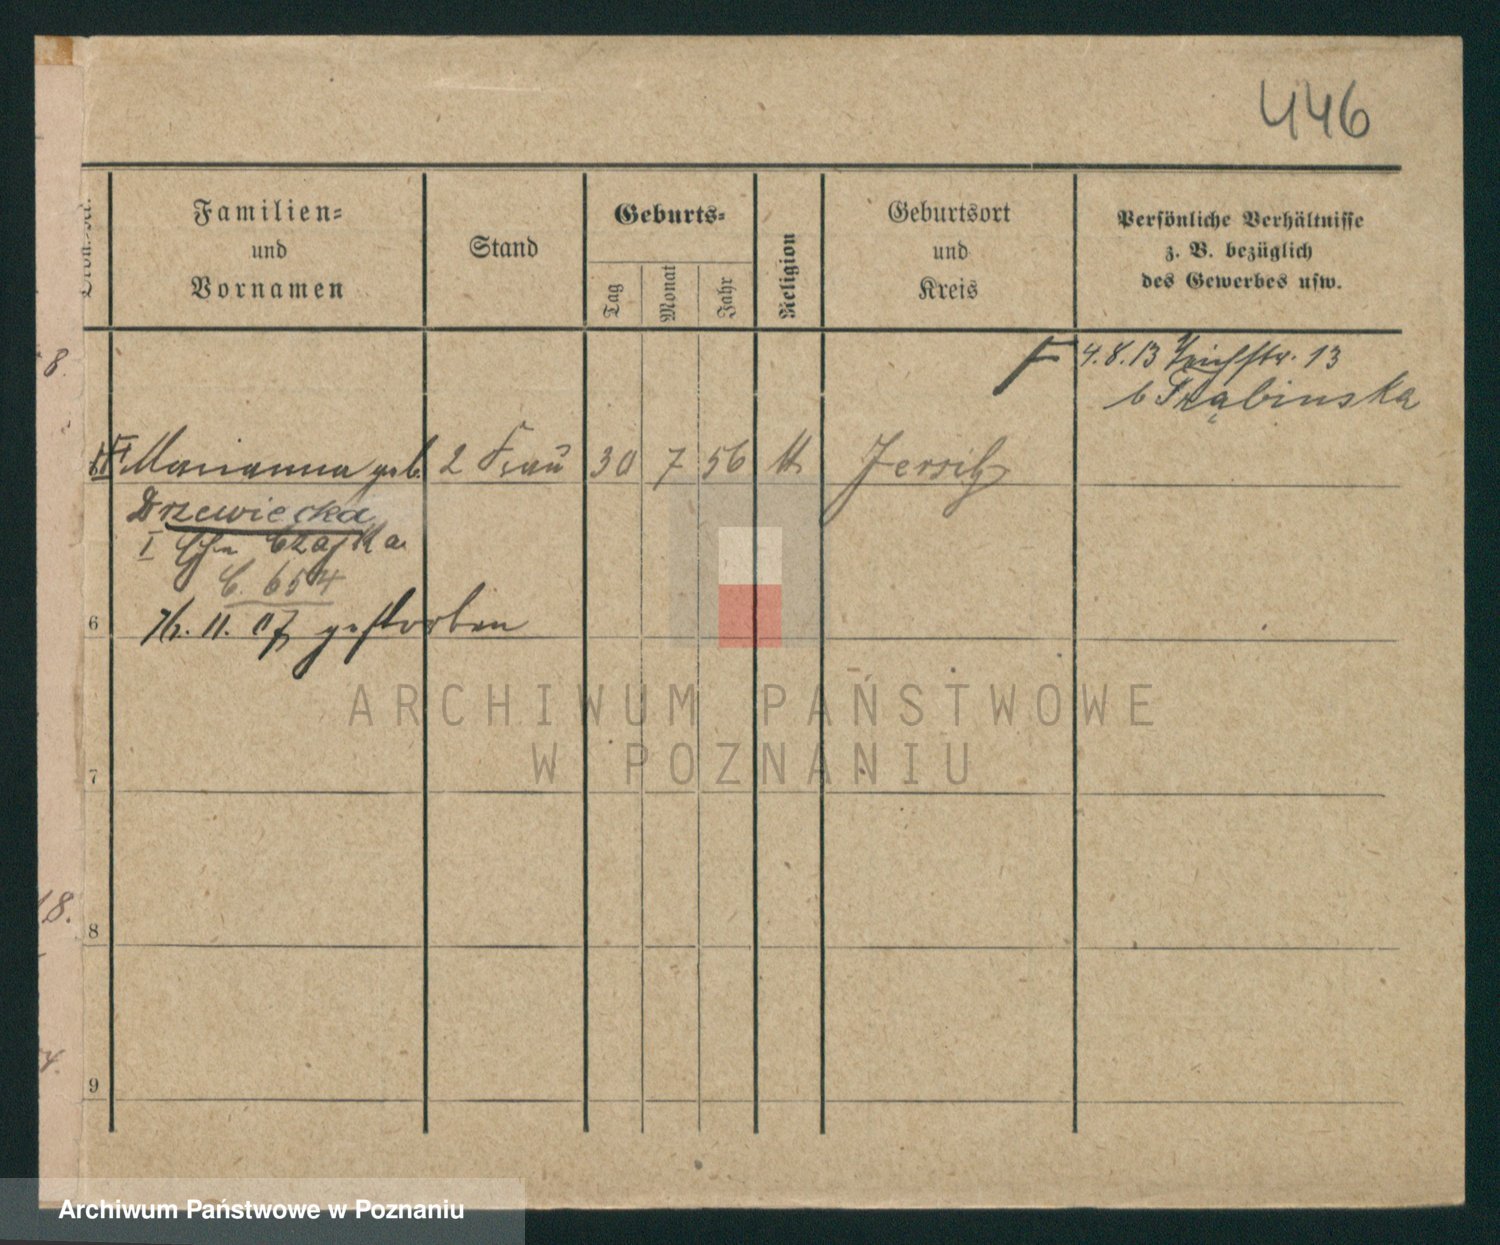 446
Familien=
und
Vornamen
Stand
Geburts=
Tag
Monat
Jahr
Religion
Geburtsort
und
Kreis
Persönliche Verhältnisse
z. B. bezüglich
des Gewerbes usw.
8.
4.8.13 13
b Trąbinska
Marianna geb. 2 Frau 30 7 56 Jersitz
Drzewiecka
I Ehe Czajka
C. 654
6
11. 07 gestorben
ARCHIWUM PAŃSTWOWE
W POZNANIU
7
18.
8
9
Archiwum Państwowe w Poznaniu